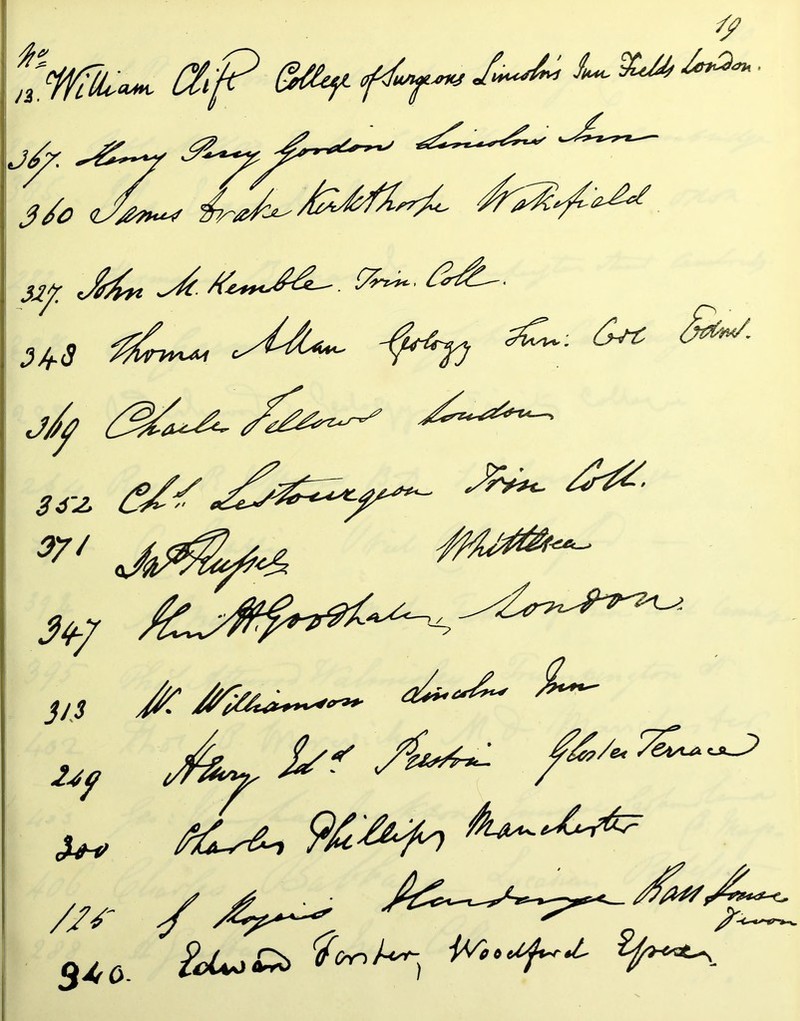 19
No
13. William Clift College of Surgeons Lincoln's Inn Fields London.
367. Henry Percy Gordon Lincolns Inn
360 James Drake Kirkthorpe Wakefield
327. John M. Kemble. Trin. Coll.
348 Thomas Allan Geology Edinr.
369 Charles Fellows London
352 Chs. Lestourgeon Trin Coll.
371 Russel Whittlesea
347 London.
313 W. Williamson Lincolns Inn
249 Henry Edd. Preston Gloster Terrace
300 Charles Phillips Manchester
125 G Rogers House
Devon
340. Edward Forster, Woodford Essex.